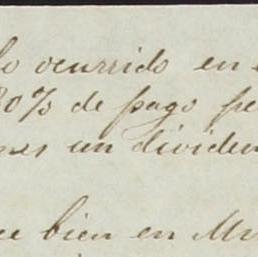 lo ocurrido en
80% de pago pe
nes un dividen
ce bien en Mu